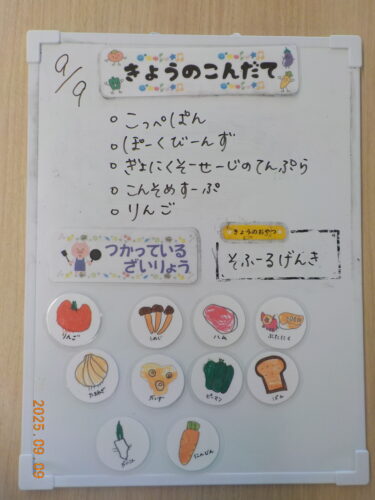 9/9
きょうのこんだて
○ こっぺぱん
○ ぽーくびーんず
○ ぎょにくそーせーじのてんぷら
○ こんそめすーぷ
○ りんご
つかっている
ざいりょう
きょうのおやつ
そふーるげんき
りんご
しめじ
ハム
ぶたにく
たまねぎ
だいず
ピーマン
ぱん
にんじん
2025.09.09